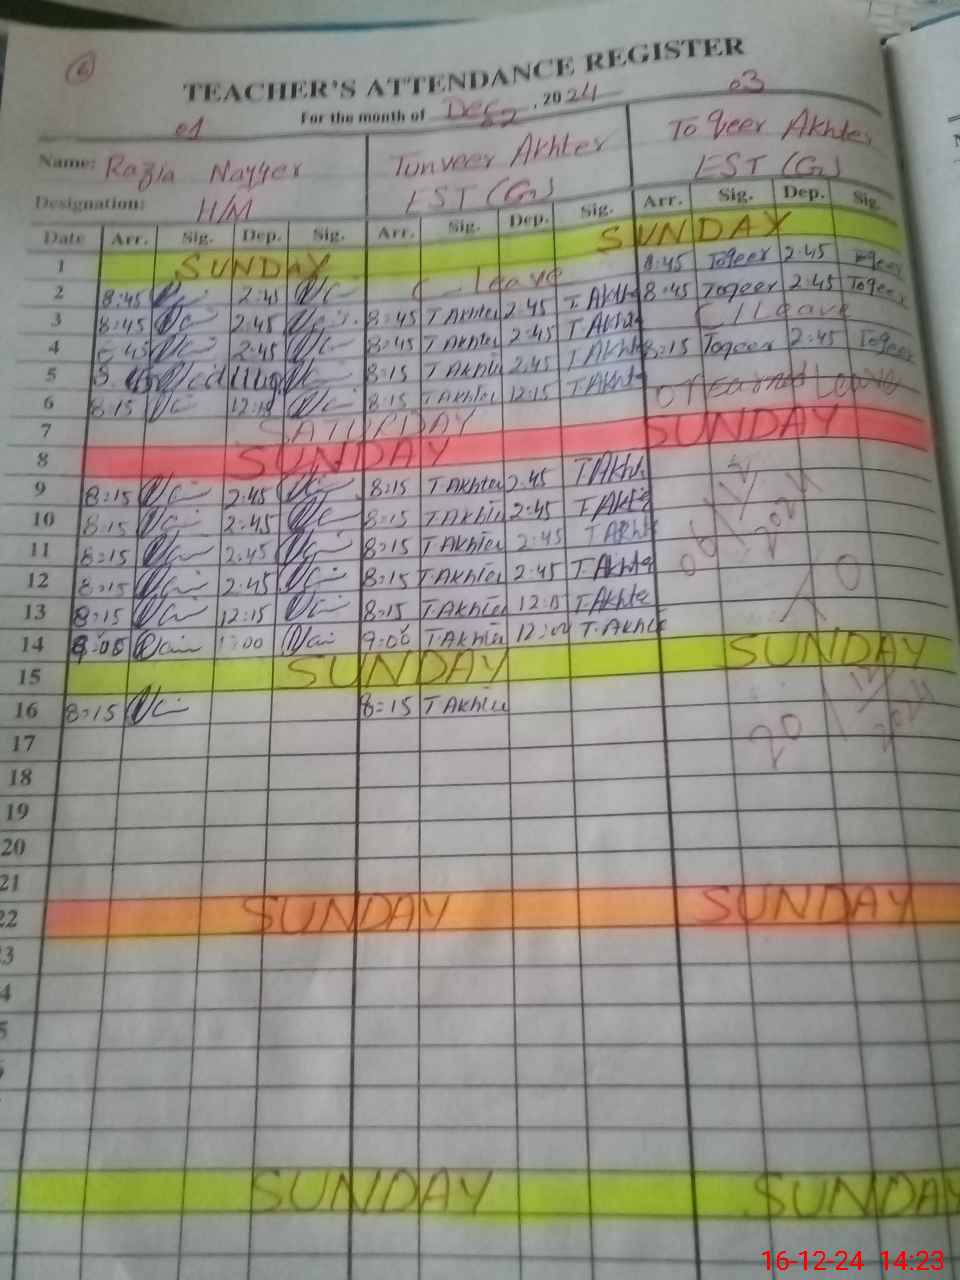 6
TEACHER'S ATTENDANCE REGISTER
For the month of Dec, 2024
01 03
Name: Razia Nayyer Tanveer Akhter Toqeer Akhter
Designation: H/M EST (G) EST (G)
Date Arr. Sig. Dep. Sig. Arr. Sig. Dep. Sig. Arr. Sig. Dep. Sig.
1 SUNDAY SUNDAY
2 8:45 2:45 C. leave 8:45 Toqeer 2:45 Toqeer
3 8:45 2:45 8:45 T Akhter 2:45 T. Akhte 8:45 Toqeer 2:45 Toqeer
4 2:45 8:45 T Akhter 2:45 T Akhte C/Leave
5 8:15 T Akhte 2:45 T Akhte 8:15 Toqeer 2:45 Toqeer
6 8:15 12:15 8:15 T Akhter 12:15 T Akhte Leave
7 SATURDAY
8 SUNDAY SUNDAY
9 8:15 2:45 8:15 T Akhter 2:45 T Akhte
10 8:15 2:45 8:15 T Akhte 2:45 T Akhte
11 8:15 2:45 8:15 T Akhter 2:45 T Akhte
12 8:15 2:45 8:15 T. Akhter 2:45 T. Akhte
13 8:15 12:15 8:15 T. Akhter 12:15 T. Akhte
14 9:00 1:00 9:00 T. Akhte 12:00 T. Akhte
15 SUNDAY SUNDAY
16 8:15 8:15 T Akhte
17
18
19
20
21
22 SUNDAY SUNDAY
3
4
5
SUNDAY SUNDAY
16-12-24 14:23